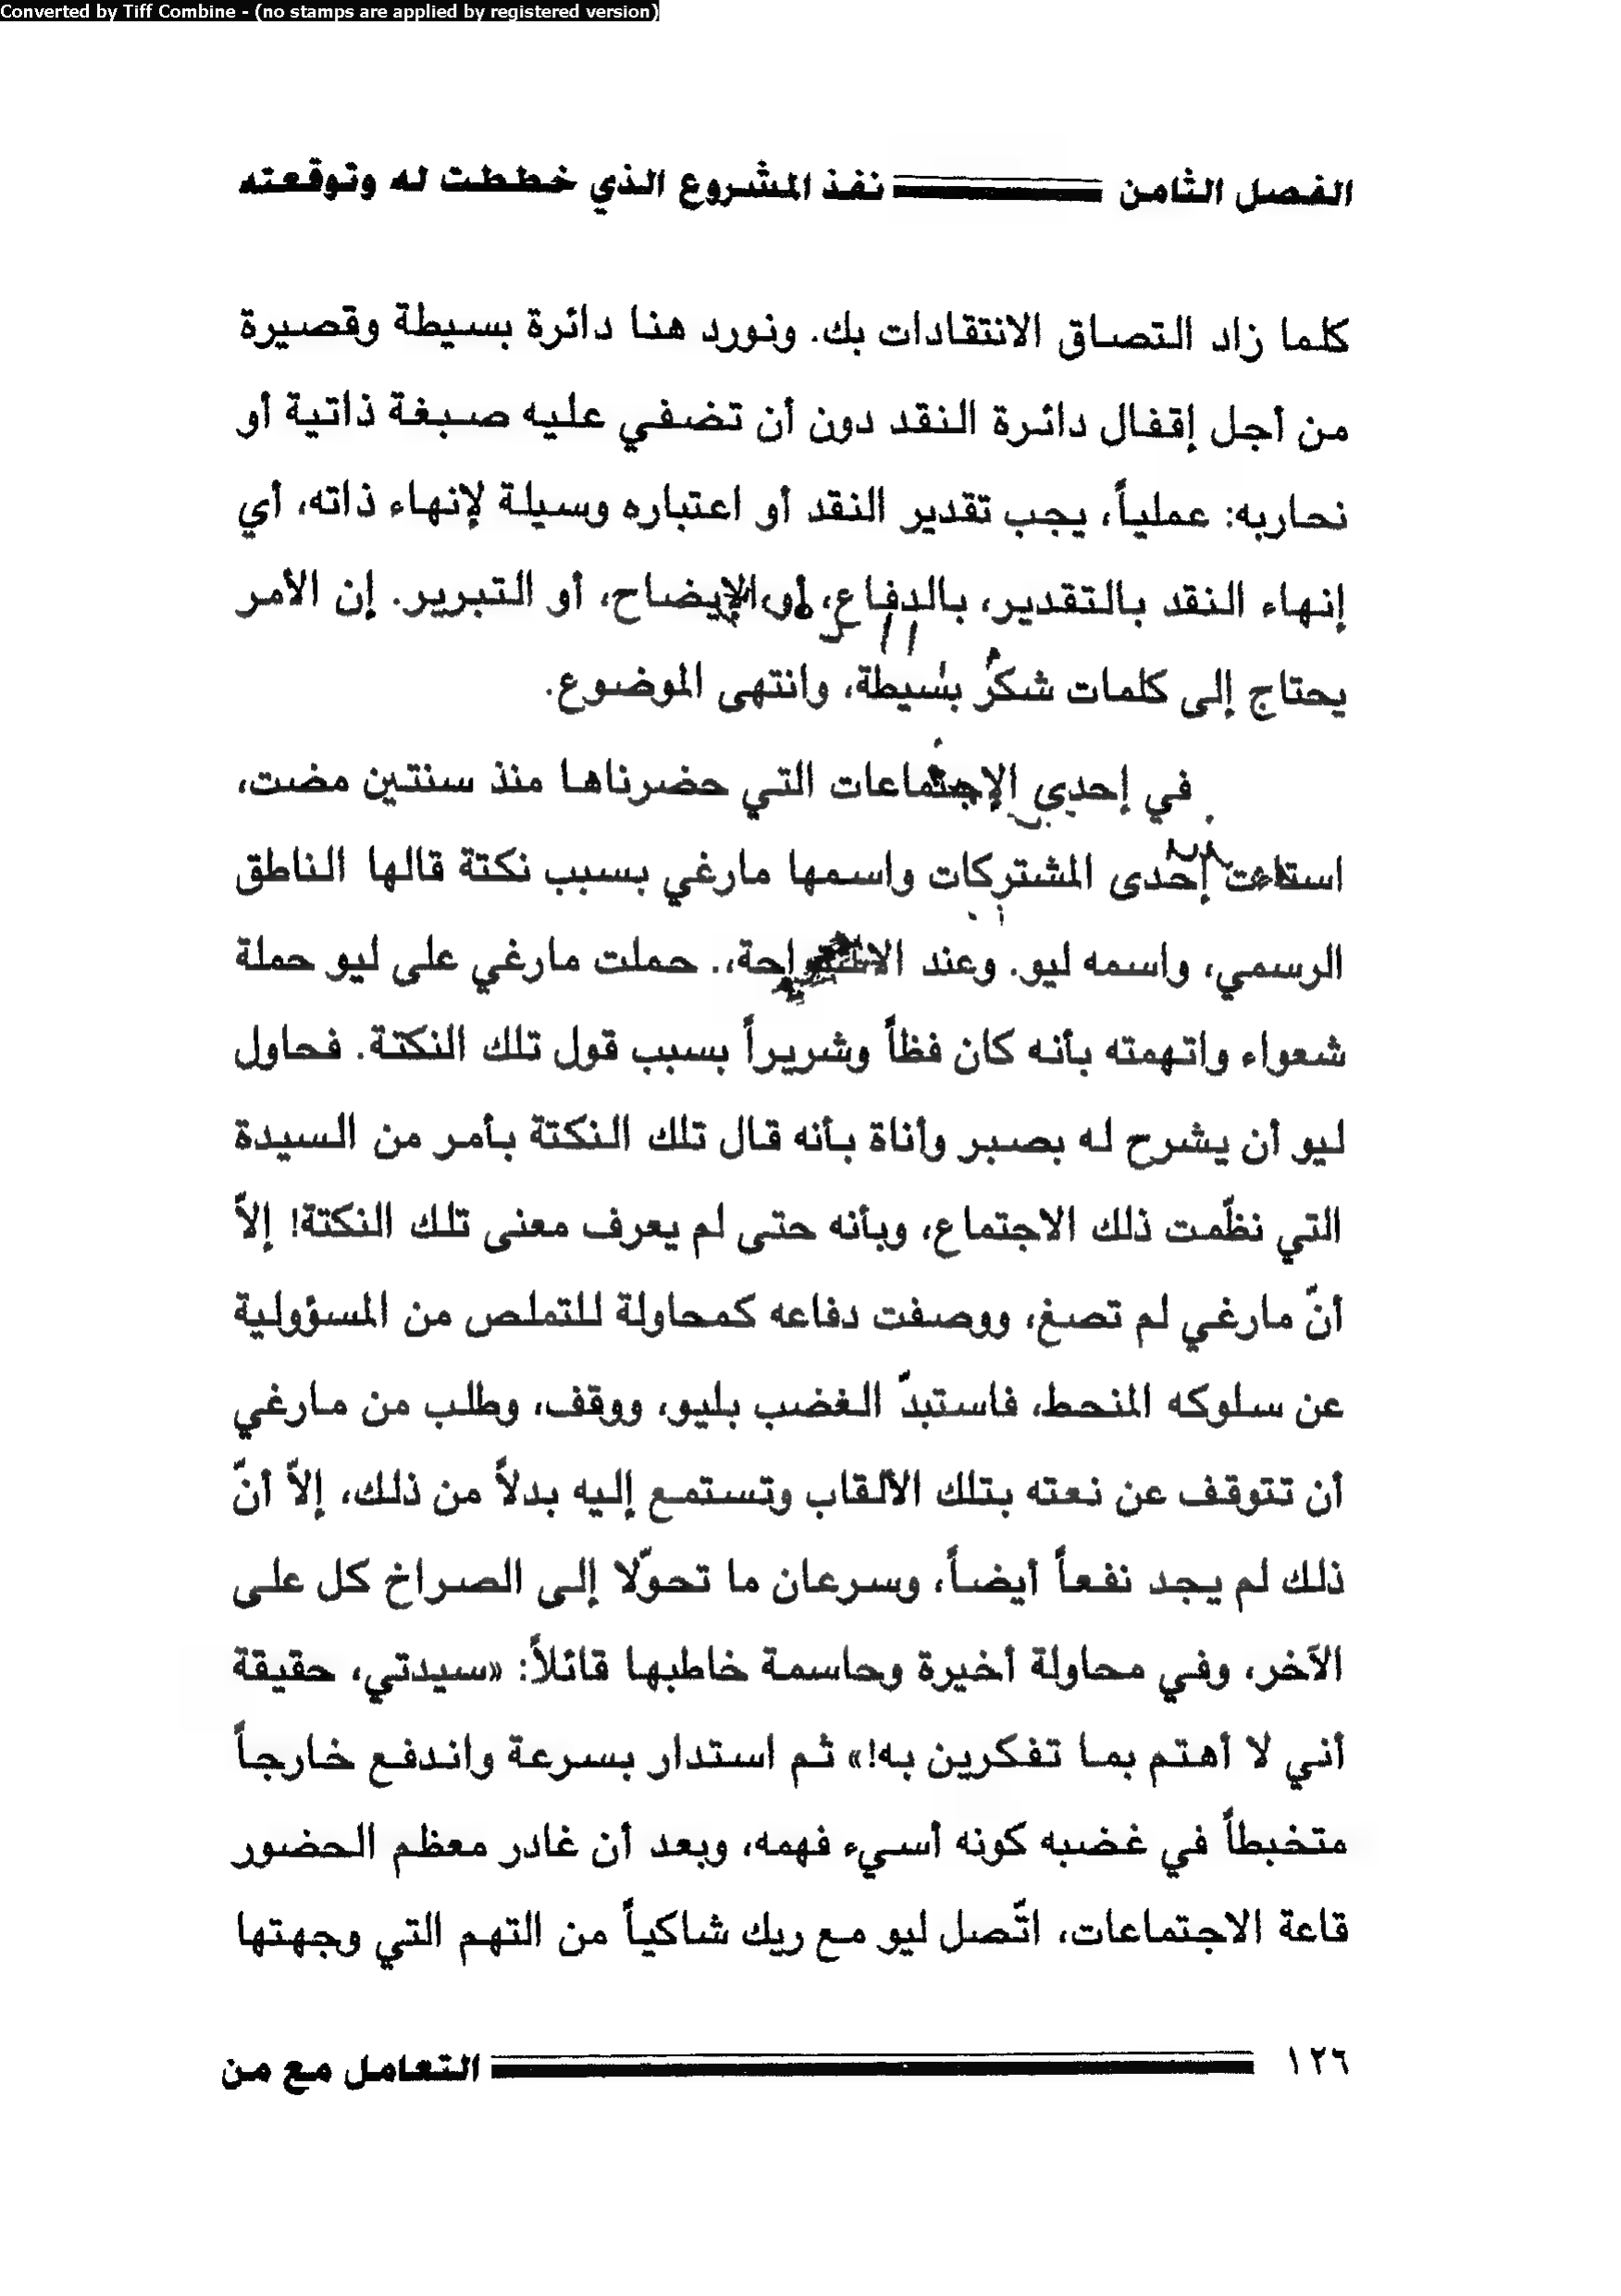 Converted by Tiff Combine - (no stamps are applied by registered version)
الفصل الثامن نفذ المشروع الذي خططت له وتوقعته
كلما زاد التصاق الانتقادات بك. ونورد هنا دائرة بسيطة وقصيرة
من أجل إقفال دائرة النقد دون أن تضفي عليه صبغة ذاتية أو
نحاربه: عملياً، يجب تقدير النقد أو اعتباره وسيلة لإنهاء ذاته، أي
إنهاء النقد بالتقدير، بالدفاع، أو الإيضاح، أو التبرير. إن الأمر
يحتاج إلى كلمات شكر بسيطة، وانتهى الموضوع.
في إحدى الإجتماعات التي حضرناها منذ سنتين مضت،
استاءت إحدى المشتركات واسمها مارغي بسبب نكتة قالها الناطق
الرسمي، واسمه ليو. وعند .. حملت مارغي على ليو حملة
شعواء واتهمته بأنه كان فظاً وشريراً بسبب قول تلك النكتة. فحاول
ليو أن يشرح له بصبر وأناة بأنه قال تلك النكتة بأمر من السيدة
التي نظّمت ذلك الاجتماع، وبأنه حتى لم يعرف معنى تلك النكتة! إلاّ
أنّ مارغي لم تصغ، ووصفت دفاعه كمحاولة للتملص من المسؤولية
عن سلوكه المنحط، فاستبدّ الغضب بليو، ووقف، وطلب من مارغي
أن تتوقف عن نعته بتلك الألقاب وتستمع إليه بدلاً من ذلك، إلاّ أنّ
ذلك لم يجد نفعاً أيضاً، وسرعان ما تحوّلا إلى الصراخ كل على
الآخر، وفي محاولة أخيرة وحاسمة خاطبها قائلاً: «سيدتي، حقيقة
أني لا أهتم بما تفكرين به!» ثم استدار بسرعة واندفع خارجاً
متخبطاً في غضبه كونه أسيء فهمه، وبعد أن غادر معظم الحضور
قاعة الاجتماعات، اتّصل ليو مع ريك شاكياً من التهم التي وجهتها
١٢٦ التعامل مع من